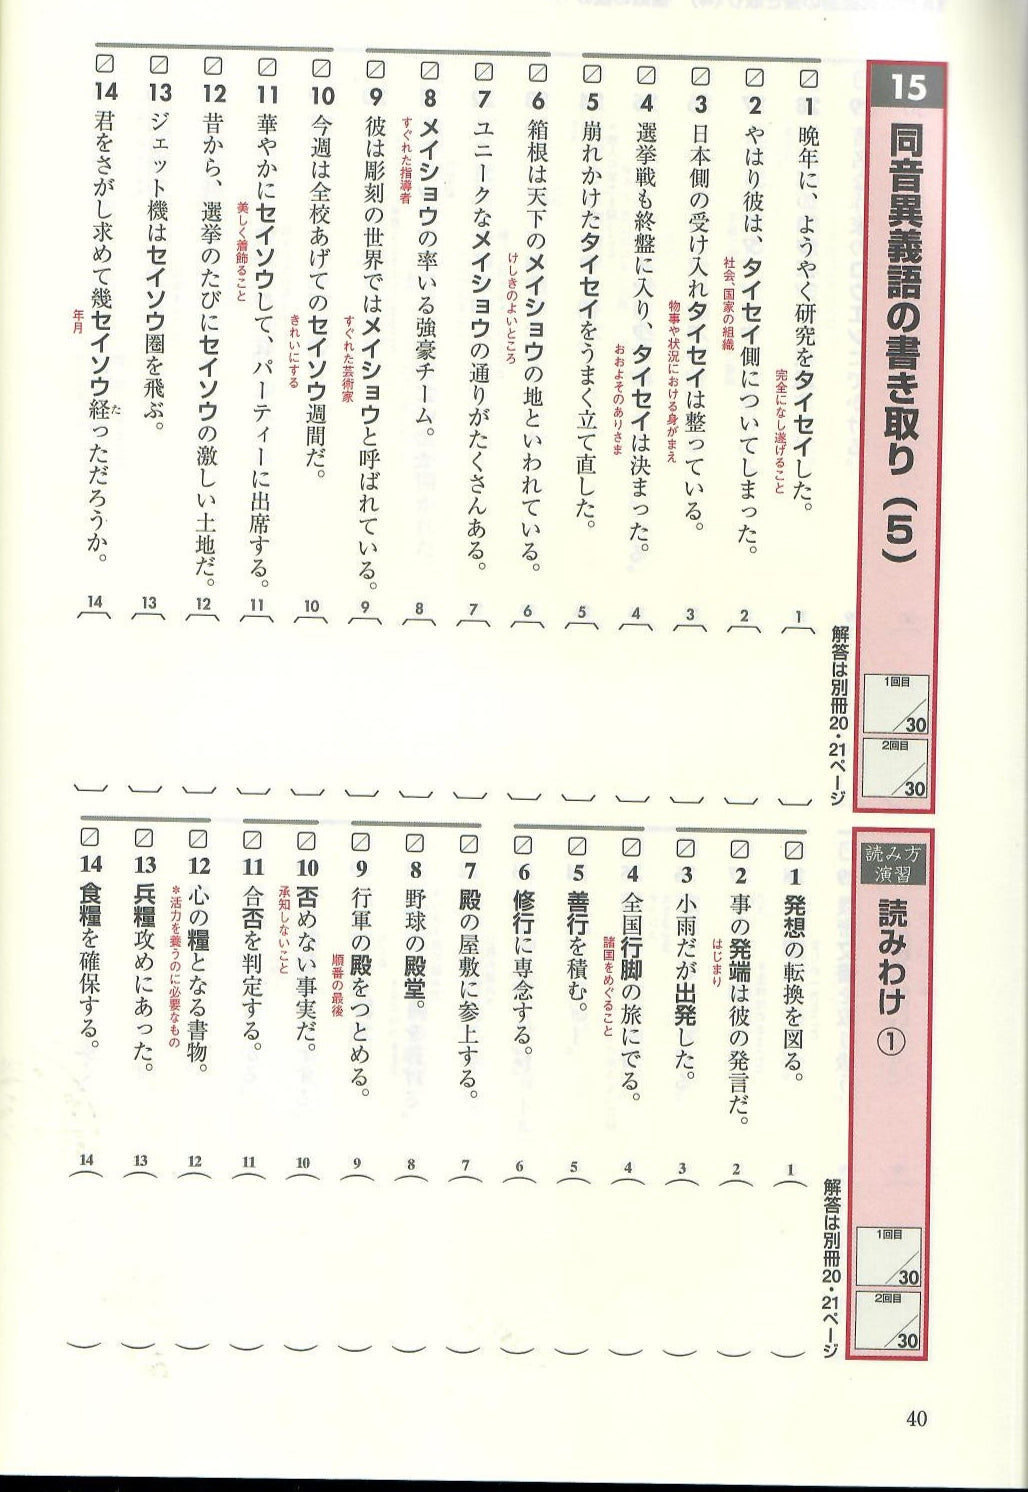 15 同音異義語の書き取り（5）
1回目 /30
2回目 /30
解答は別冊20・21ページ
1 晩年に、ようやく研究をタイセイした。
完全になし遂げること
2 やはり彼は、タイセイ側についてしまった。
社会、国家の組織
3 日本側の受け入れタイセイは整っている。
物事や状況における身がまえ
4 選挙戦も終盤に入り、タイセイは決まった。
おおよそのありさま
5 崩れかけたタイセイをうまく立て直した。
6 箱根は天下のメイショウの地といわれている。
けしきのよいところ
7 ユニークなメイショウの通りがたくさんある。
8 メイショウの率いる強豪チーム。
すぐれた指導者
9 彼は彫刻の世界ではメイショウと呼ばれている。
すぐれた芸術家
10 今週は全校あげてのセイソウ週間だ。
きれいにする
11 華やかにセイソウして、パーティーに出席する。
美しく着飾ること
12 昔から、選挙のたびにセイソウの激しい土地だ。
13 ジェット機はセイソウ圏を飛ぶ。
14 君をさがし求めて幾セイソウ経っただろうか。
た
年月
1
2
3
4
5
6
7
8
9
10
11
12
13
14
読み方演習 読みわけ ①
1回目 /30
2回目 /30
解答は別冊20・21ページ
1 発想の転換を図る。
2 事の発端は彼の発言だ。
はじまり
3 小雨だが出発した。
4 全国行脚の旅にでる。
諸国をめぐること
5 善行を積む。
6 修行に専念する。
7 殿の屋敷に参上する。
8 野球の殿堂。
9 行軍の殿をつとめる。
順番の最後
10 否めない事実だ。
承知しないこと
11 合否を判定する。
12 心の糧となる書物。
＊活力を養うのに必要なもの
13 兵糧攻めにあった。
14 食糧を確保する。
1
2
3
4
5
6
7
8
9
10
11
12
13
14
40